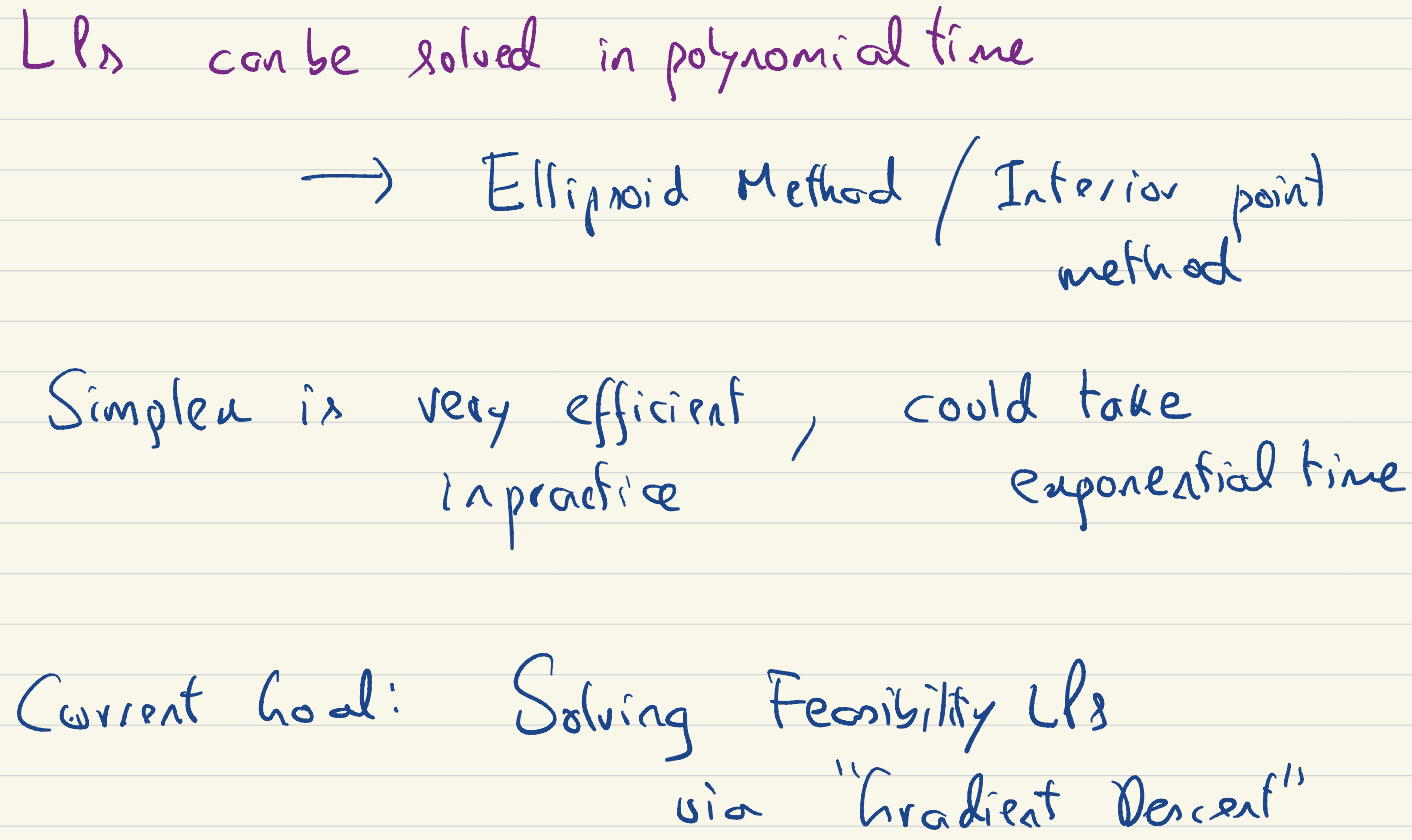 LPs can be solved in polynomial time
→ Ellipsoid Method / Interior point
method
Simplex is very efficient, could take
in practice exponential time
Current Goal: Solving Feasibility LPs
via "Gradient Descent"